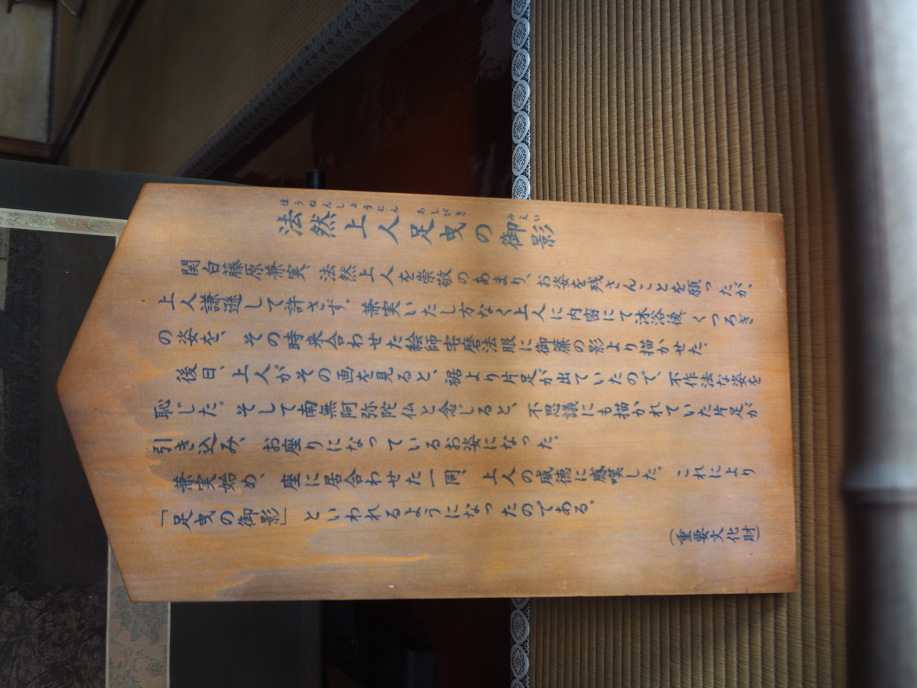 法然上人足曳の御影
ほうねんしょうにん あしびき みえい
関白藤原兼実、法然上人を崇敬のあまり、お姿を残さんことを願ったが、
上人謙遜して許さず。兼実いたし方なく上人に内密にて沐浴後くつろぎ
の姿を、その時来合わせた絵師宅磨法眼に御簾の影より描かせた。
後日、上人がその画を見ると、裾より片足が出ていたので、不作法な姿を
恥じた。そして南無阿弥陀仏と念じると、不思議にも描かれていた片足が
引き込み、お座りになっているお姿になった。
兼実始め、座に居合わせた一同、上人の威徳に感嘆した。これにより
「足曳の御影」といわれるようになったのである。
(重要文化財)